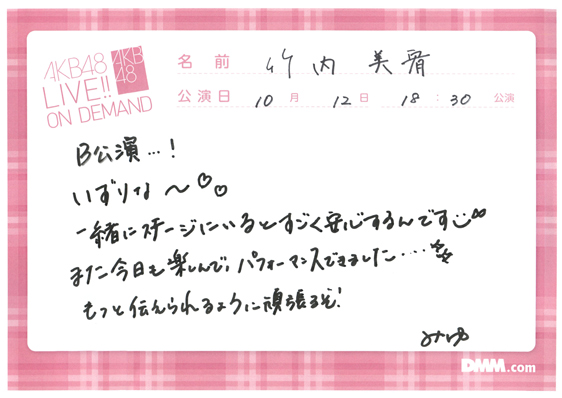 AKB48
LIVE!!
ON DEMAND
AKB
48
名前 竹内 美宥
公演日 10月 12日 18:30 公演
B公演…!
いずりな〜♡♡
一緒にステージにいるとすごく安心するんです
また今日も楽しんで、パフォーマンスできました…
もっと伝えられるように頑張るぞ!
みゆ
DMM.com